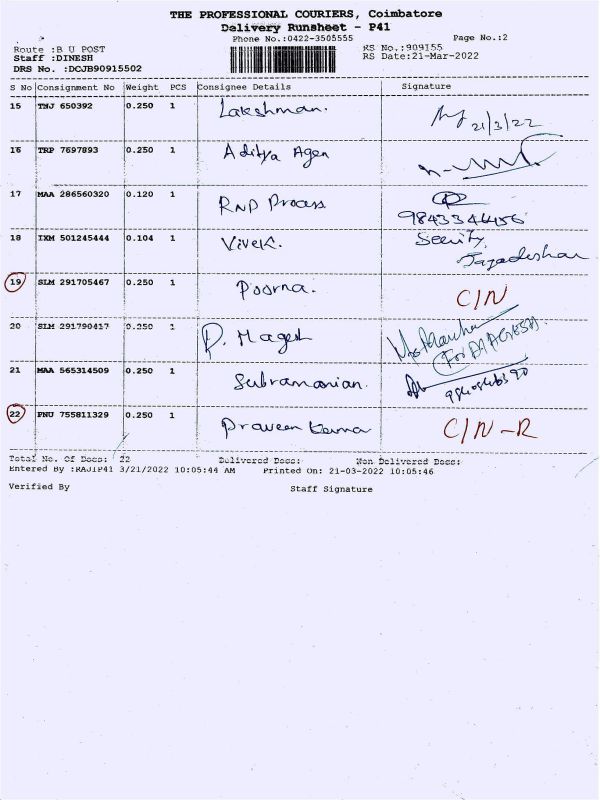 THE PROFESSIONAL COURIERS, Coimbatore
Delivery Runsheet - P41
Phone No.:0422-3505555 Page No.:2
Route :B U POST RS No.:909155
Staff :DINESH RS Date:21-Mar-2022
DRS No. :DCJB90915502
S No Consignment No Weight PCS Consignee Details Signature
15 TNJ 650392 0.250 1 Lakshman. 21/3/22
16 TRP 7697893 0.250 1 Aditya Agen
17 MAA 286560320 0.120 1 RNP Process
18 IXM 501245444 0.104 1 Vivek.
19 SLM 291705467 0.250 1 Poorna. C/N
20 SLM 291790417 0.250 1 P. Magesh
21 MAA 565314509 0.250 1 Subramanian.
22 PNU 755811329 0.250 1 Praveen Kumar C/N-R
Total No. Of Docs: 22 Delivered Docs: Non Delivered Docs:
Entered By :RAJIP41 3/21/2022 10:05:44 AM Printed On: 21-03-2022 10:05:46
Verified By Staff Signature